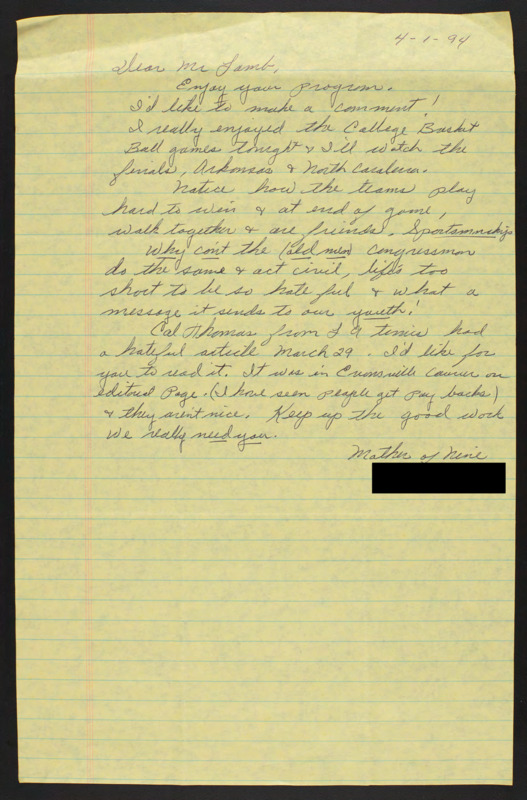 4-1-94
Dear Mr Lamb,
Enjoy your program.
I'd like to make a comment!
I really enjoyed the College Basket
Ball games tonight & I'll watch the
finals, Arkansas & North Carolina.
Notice how the teams play
hard to win & at end of game,
walk together & are friends. Sportsmanship
Why can't the (old men) congressman
do the same & act civil, life's too
short to be so hateful & what a
message it sends to our youth!
Cal Thomas from L A times had
a hateful article March 29. I'd like for
you to read it. It was in Evansville Courier on
editorial Page. (I have seen people get pay backs)
& they arent nice. Keep up the good work
we really need you.
Mother of Nine